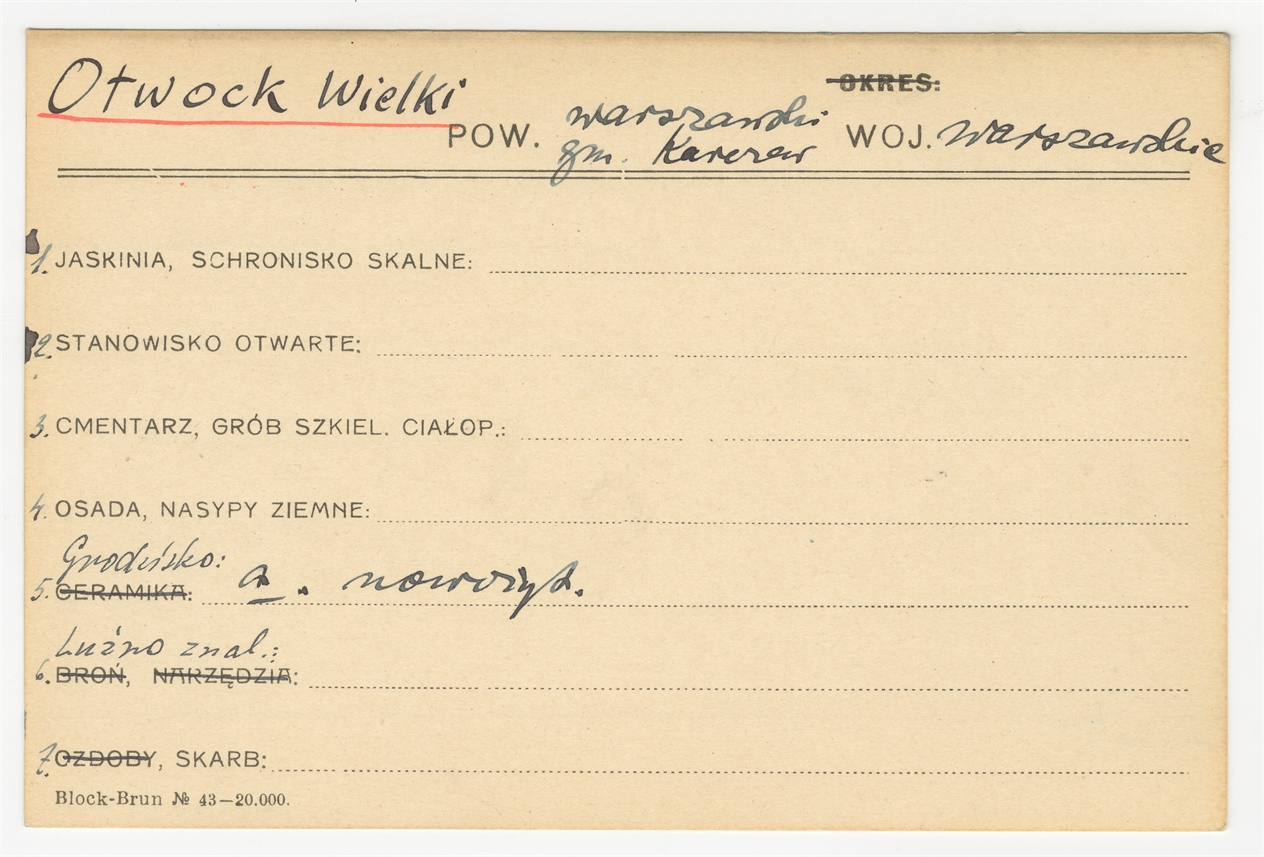 Otwock Wielki
OKRES:
POW. warszawski WOJ. warszawskie
gm. Karczew
1. JASKINIA, SCHRONISKO SKALNE:
2. STANOWISKO OTWARTE:
3. CMENTARZ, GRÓB SZKIEL. CIAŁOP.:
4. OSADA, NASYPY ZIEMNE:
Grodzisko:
5. CERAMIKA: a . nowożyt.
Luźno znal.:
6. BROŃ, NARZĘDZIA:
7. OZDOBY, SKARB:
Block-Brun № 43—20.000.